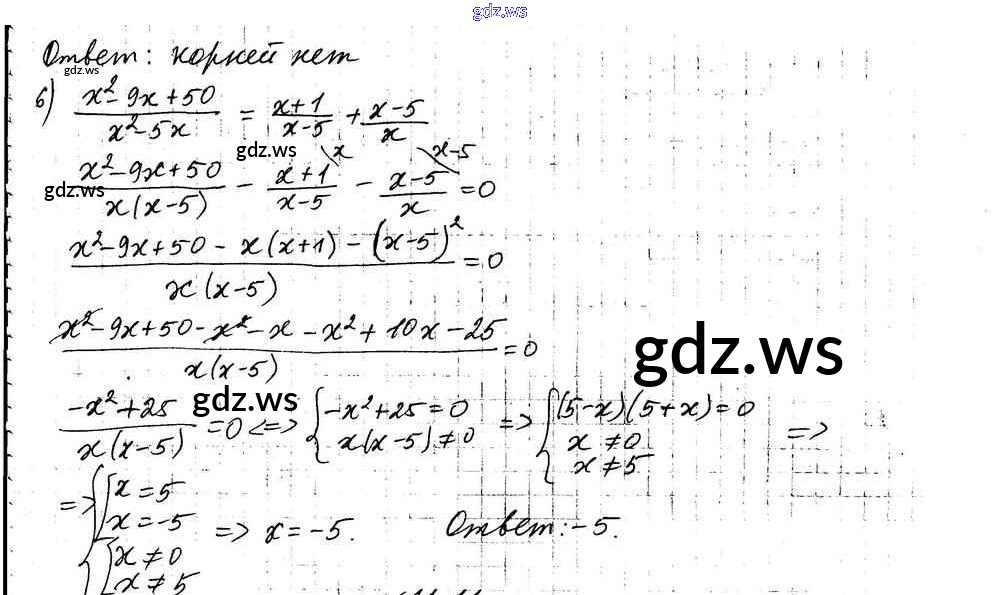 gdz.ws
Ответ: корней нет
gdz.ws
б) (x²-9x+50)/(x²-5x) = (x+1)/(x-5) + (x-5)/x
gdz.ws
(x²-9x+50)/(x(x-5)) - (x+1)/(x-5) \x - (x-5)/x \x-5 = 0
gdz.ws
(x²-9x+50 - x(x+1) - (x-5)²)/(x(x-5)) = 0
(x²-9x+50-x²-x-x²+10x-25)/(x(x-5)) = 0
gdz.ws
(-x²+25)/(x(x-5)) = 0 <=> { -x²+25=0 x(x-5)≠0 => { (5-x)(5+x)=0 x≠0 x≠5 =>
gdz.ws
=> { [ x=5 x=-5 [ x≠0 x≠5 => x=-5. Ответ: -5.